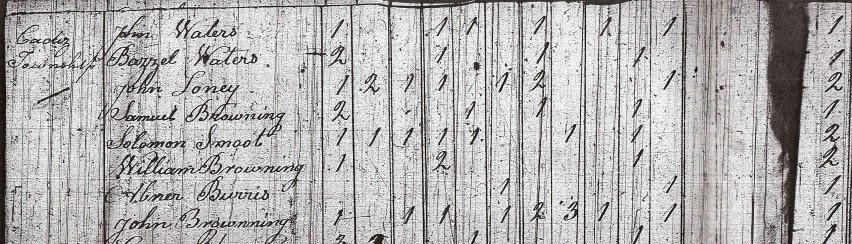 Cadiz John Waters 1 1 1 1 1 1 1
Township Bazzel Waters 2 1 1 1 1
John Loney 1 2 1 1 1 2 1 2
Samuel Browning 2 1 1 1 1
Solomon Smoot 1 1 1 1 1 1 1 2
William Browning 1 2 1 2
Abner Burris 1 1 1
John Brownning 1 1 1 1 2 3 1 1 1